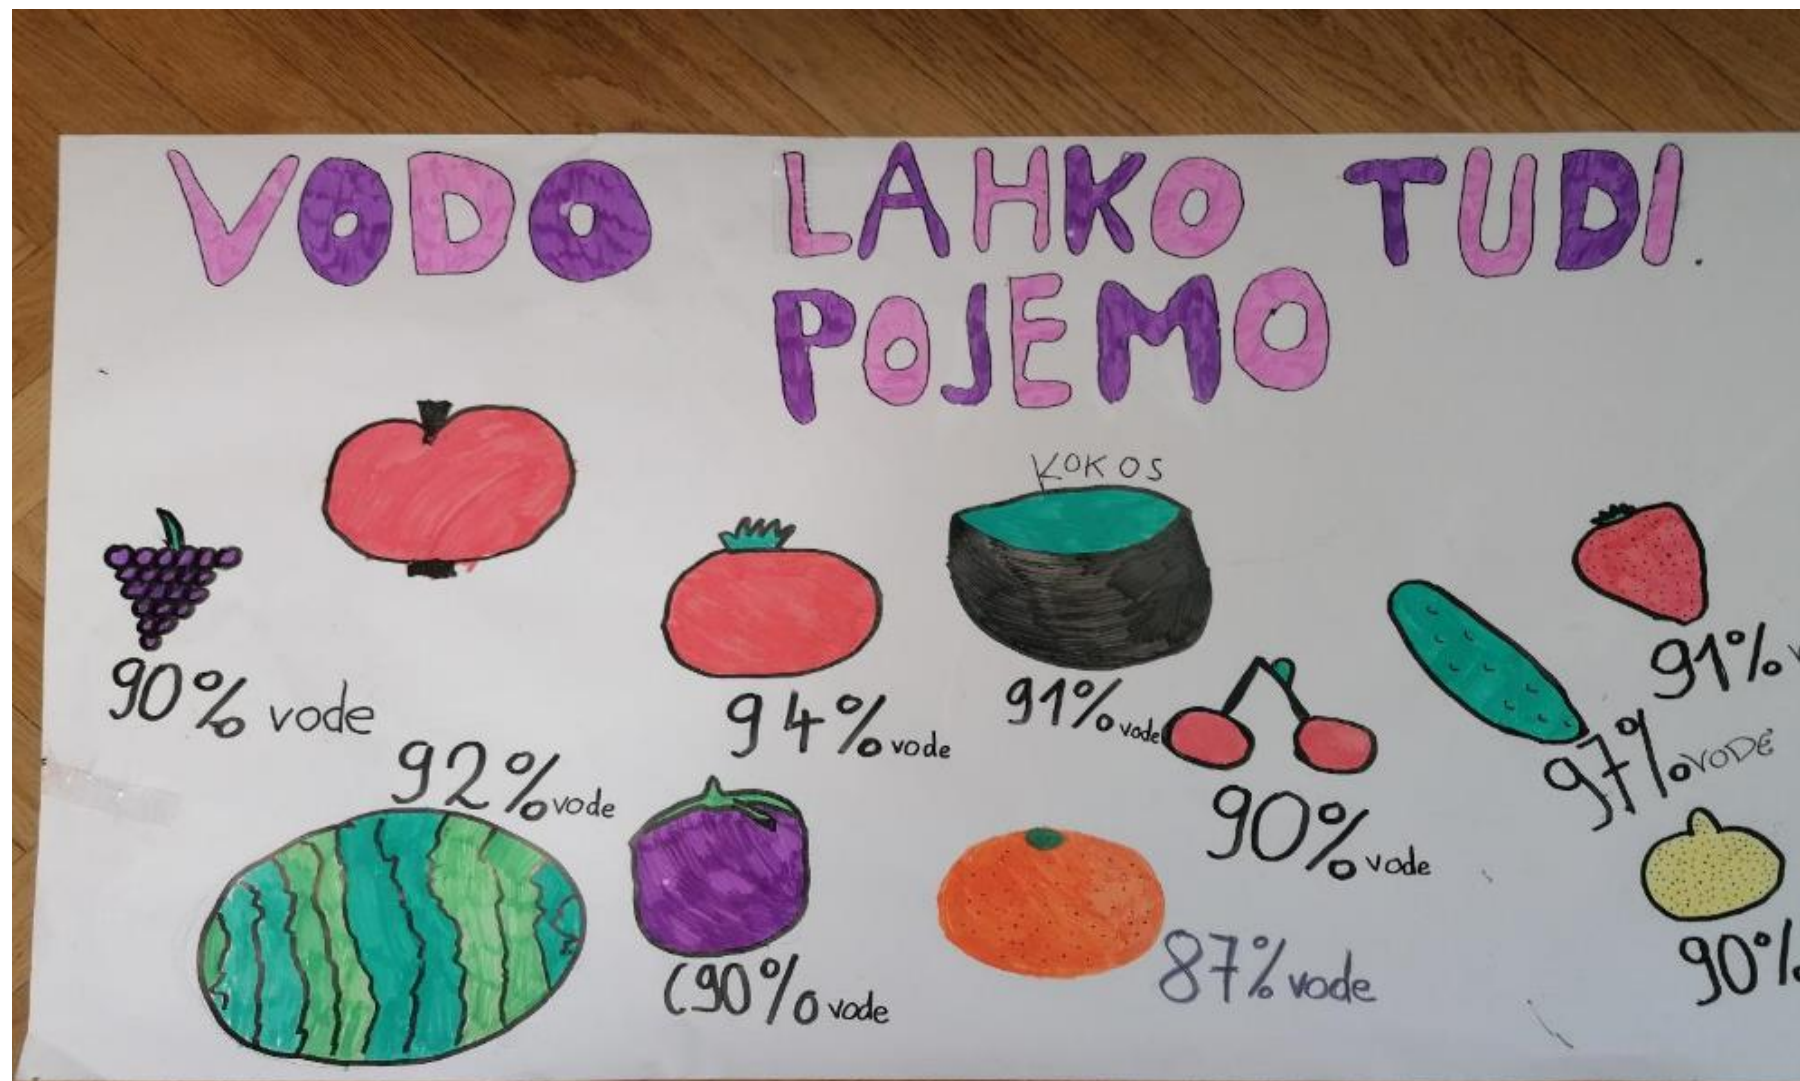 VODO LAHKO TUDI.
POJEMO
KOKOS
90% vode
94% vode
91% vode
91%
97% VODE
92% vode
90% vode
(90% vode
87% vode
90%